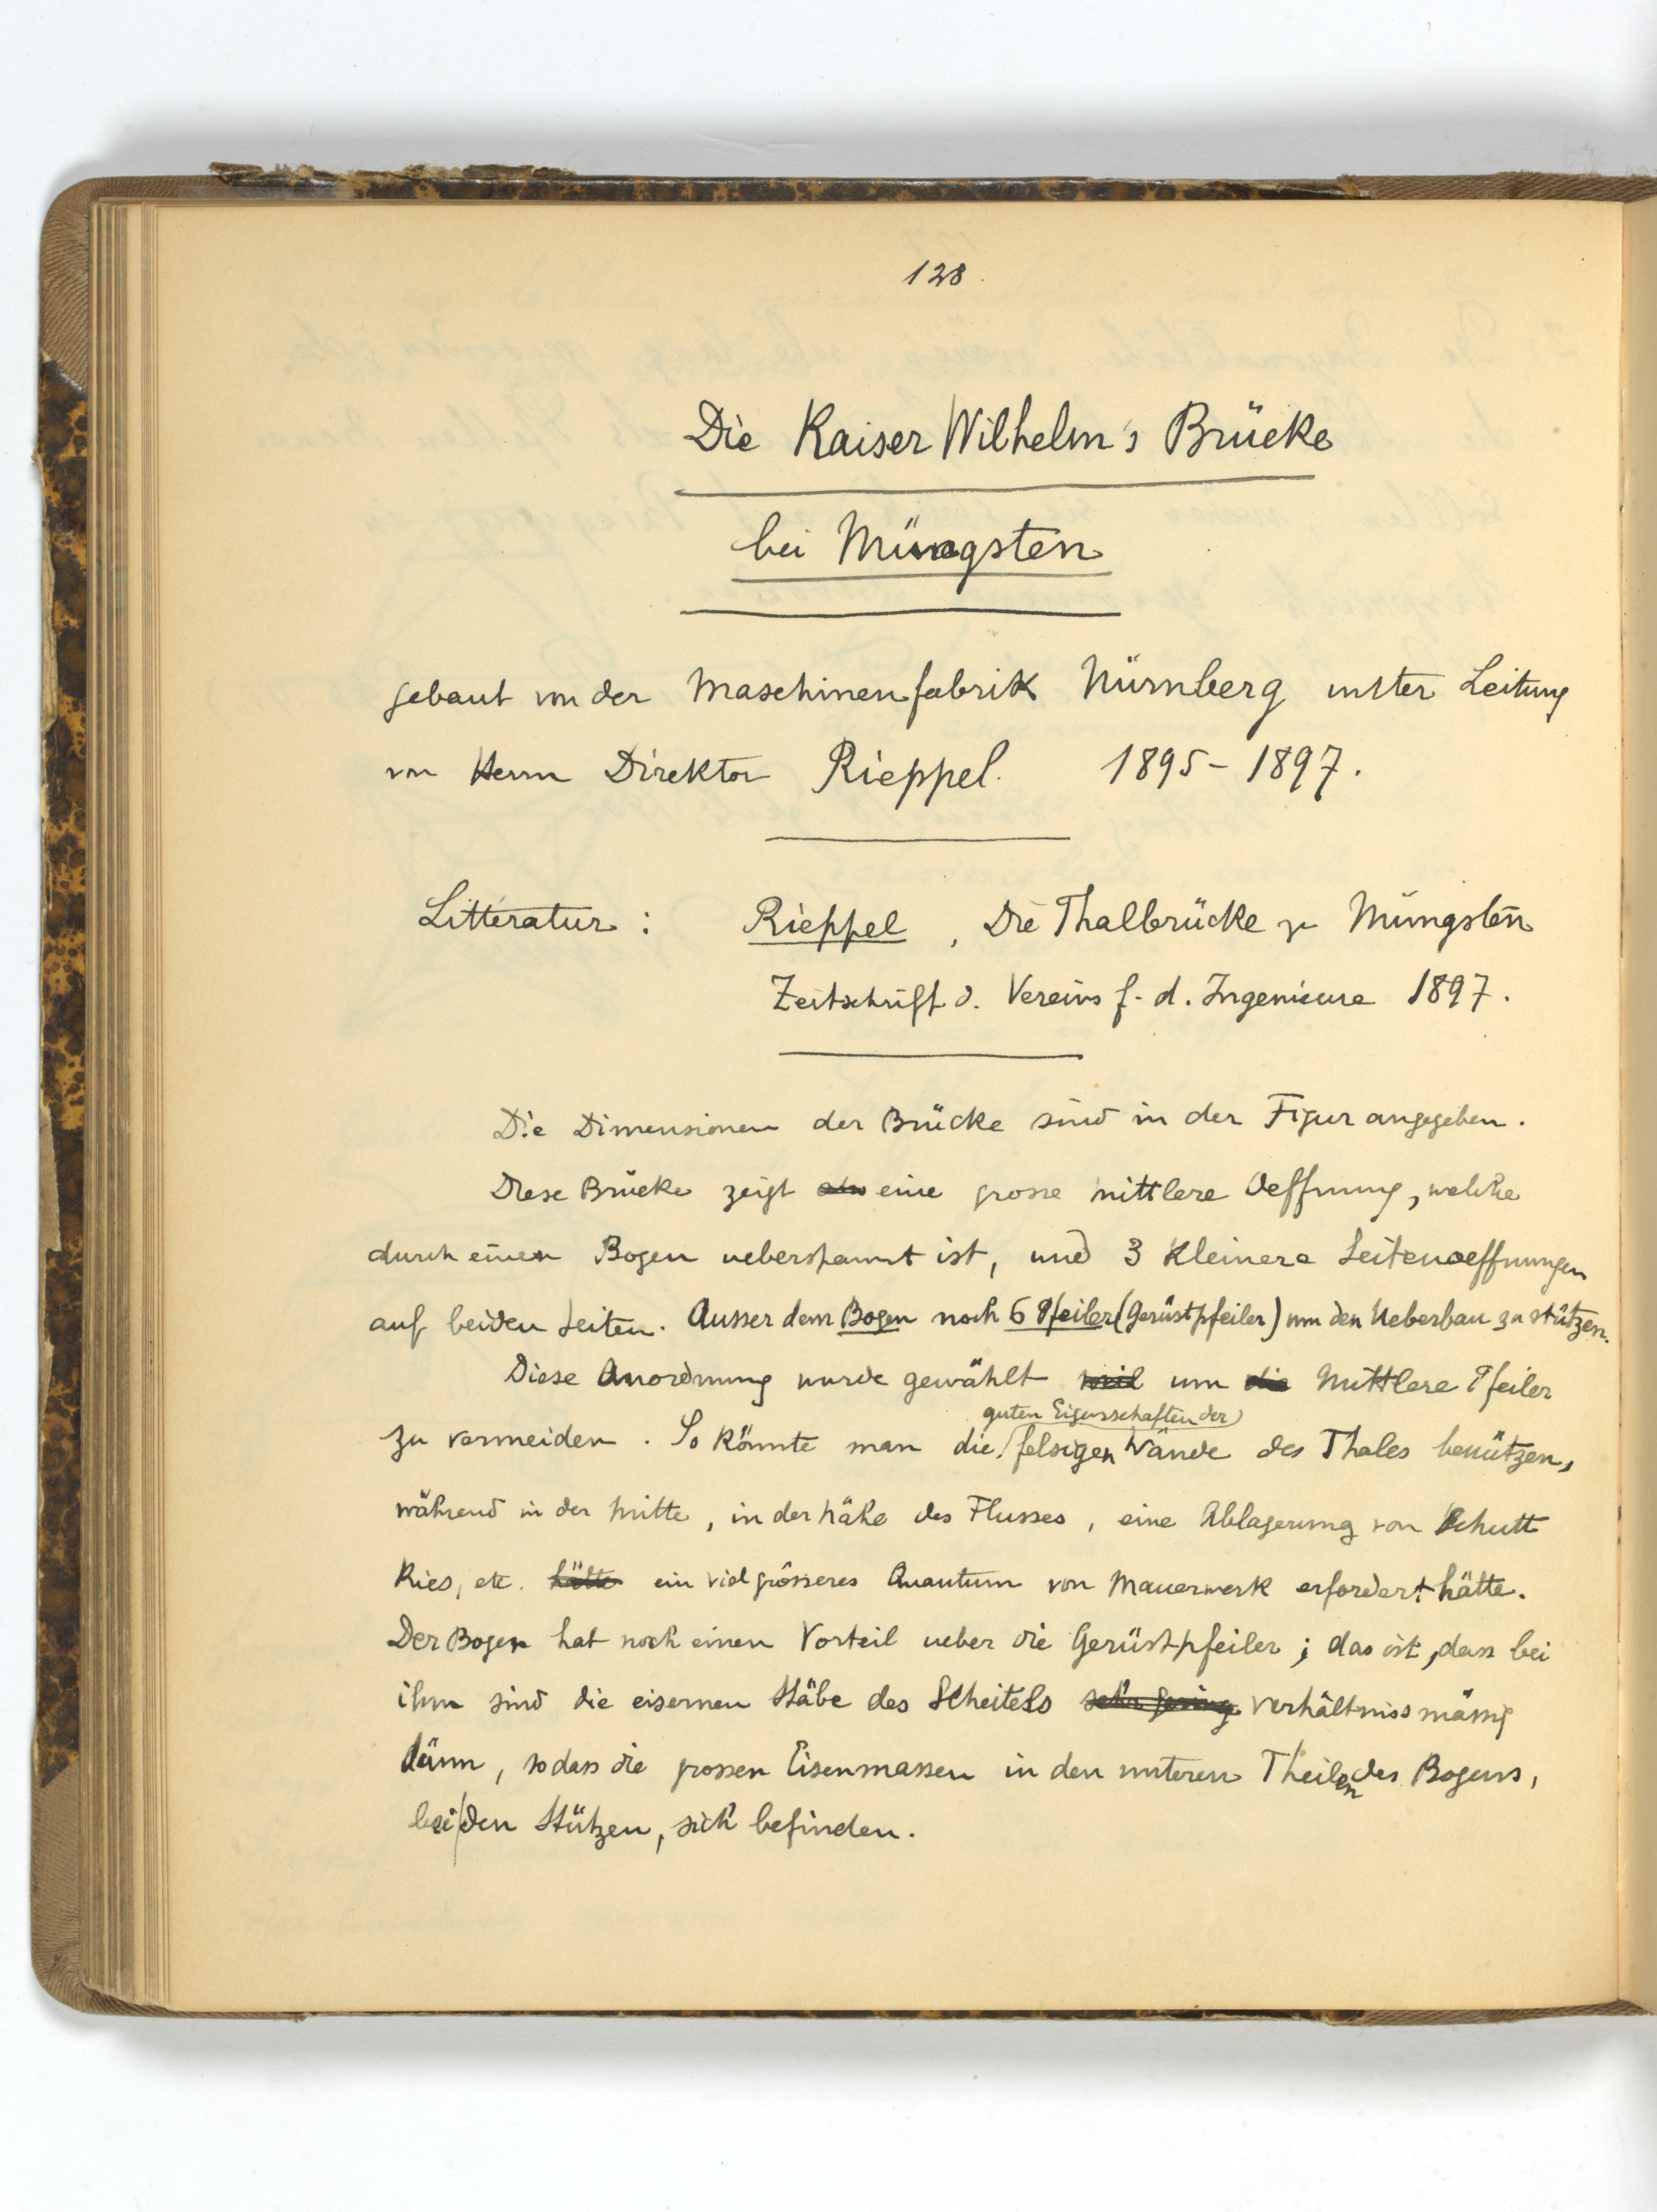 128.
Die Kaiser Wilhelm's Brücke
bei Müngsten
gebaut von der Maschinenfabrik Nürnberg unter Leitung
von Herrn Direktor Rieppel. 1895-1897.
Litteratur : Rieppel, Die Thalbrücke zu Müngsten
Zeitschrift d. Vereins f. d. Ingenieure 1897.
Die Dimensionen der Brücke sind in der Figur angegeben.
Diese Brücke zeigt eine grosse mittlere Oeffnung, welche
durch einen Bogen ueberspannt ist, und 3 kleinere Seitenoeffnungen
auf beiden Seiten. Ausser dem Bogen noch 6 Pfeiler (Gerüstpfeiler) um den Ueberbau zu stützen.
Diese Anordnung wurde gewählt weil um die mittlere Pfeiler
guten Eigenschaften der
zu vermeiden. So könnte man die felsigen Wände des Thales benützen,
während in der Mitte, in der Nähe des Flusses, eine Ablagerung von Schutt
Kies, etc. hätte ein viel grösseres Quantum von Mauerwerk erfordert hätte.
Der Bogen hat noch einen Vorteil ueber die Gerüstpfeiler; das ist, dass bei
ihm sind die eisernen Stäbe des Scheitels sehr gering verhältnissmässig
dünn, so dass die grossen Eisenmassen in den unteren Theilen des Bogens,
bei den Stützen, sich befinden.